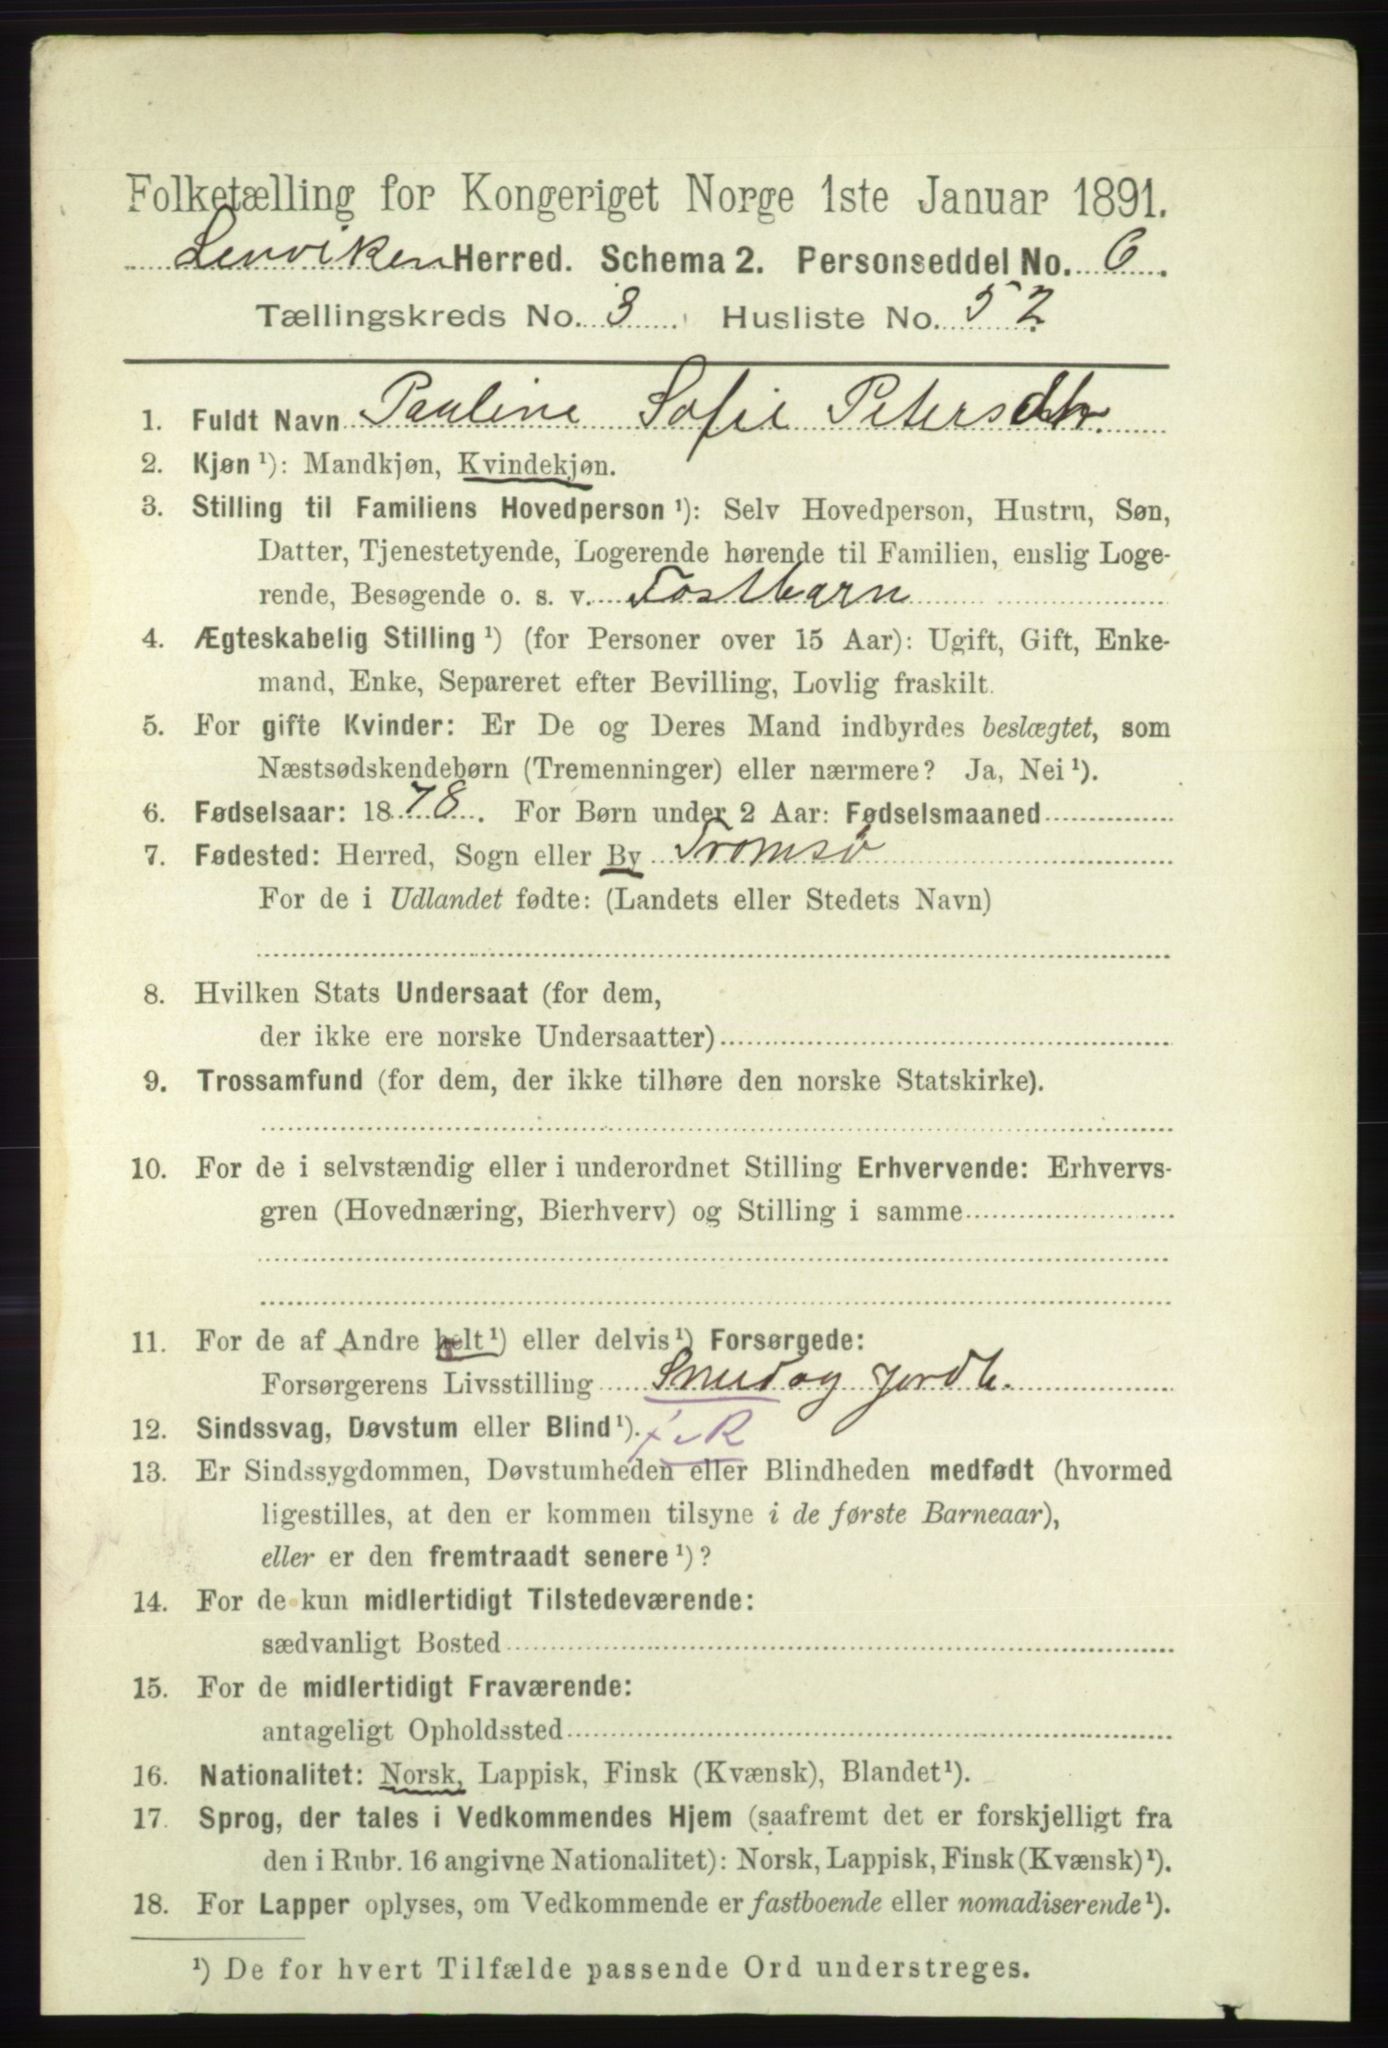 Folketælling for Kongeriget Norge 1ste Januar 1891.
Lenviken Herred. Schema 2. Personseddel No. 6.
Tællingskreds No. 3. Husliste No. 52
1. Fuldt Navn Pauline Sofie Petersdtr.
2. Kjøn ¹): Mandkjøn, Kvindekjøn.
3. Stilling til Familiens Hovedperson ¹): Selv Hovedperson, Hustru, Søn,
Datter, Tjenestetyende, Logerende hørende til Familien, enslig Loge-
rende, Besøgende o. s. v. Fostbarn
4. Ægteskabelig Stilling ¹) (for Personer over 15 Aar): Ugift, Gift, Enke-
mand, Enke, Separeret efter Bevilling, Lovlig fraskilt.
5. For gifte Kvinder: Er De og Deres Mand indbyrdes beslægtet, som
Næstsødskendebørn (Tremenninger) eller nærmere? Ja, Nei ¹).
6. Fødselsaar: 1878. For Børn under 2 Aar: Fødselsmaaned
7. Fødested: Herred, Sogn eller By Tromsö
For de i Udlandet fødte: (Landets eller Stedets Navn)
8. Hvilken Stats Undersaat (for dem,
der ikke ere norske Undersaatter)
9. Trossamfund (for dem, der ikke tilhøre den norske Statskirke).
10. For de i selvstændig eller i underordnet Stilling Erhvervende: Erhvervs-
gren (Hovednæring, Bierhverv) og Stilling i samme
11. For de af Andre helt ¹) eller delvis ¹) Forsørgede:
Forsørgerens Livsstilling Smed og Jordb.
12. Sindssvag, Døvstum eller Blind ¹).
13. Er Sindssygdommen, Døvstumheden eller Blindheden medfødt (hvormed
ligestilles, at den er kommen tilsyne i de første Barneaar),
eller er den fremtraadt senere ¹)?
14. For de kun midlertidigt Tilstedeværende:
sædvanligt Bosted
15. For de midlertidigt Fraværende:
antageligt Opholdssted
16. Nationalitet: Norsk, Lappisk, Finsk (Kvænsk), Blandet ¹).
17. Sprog, der tales i Vedkommendes Hjem (saafremt det er forskjelligt fra
den i Rubr. 16 angivne Nationalitet): Norsk, Lappisk, Finsk (Kvænsk) ¹).
18. For Lapper oplyses, om Vedkommende er fastboende eller nomadiserende ¹).
¹) De for hvert Tilfælde passende Ord understreges.